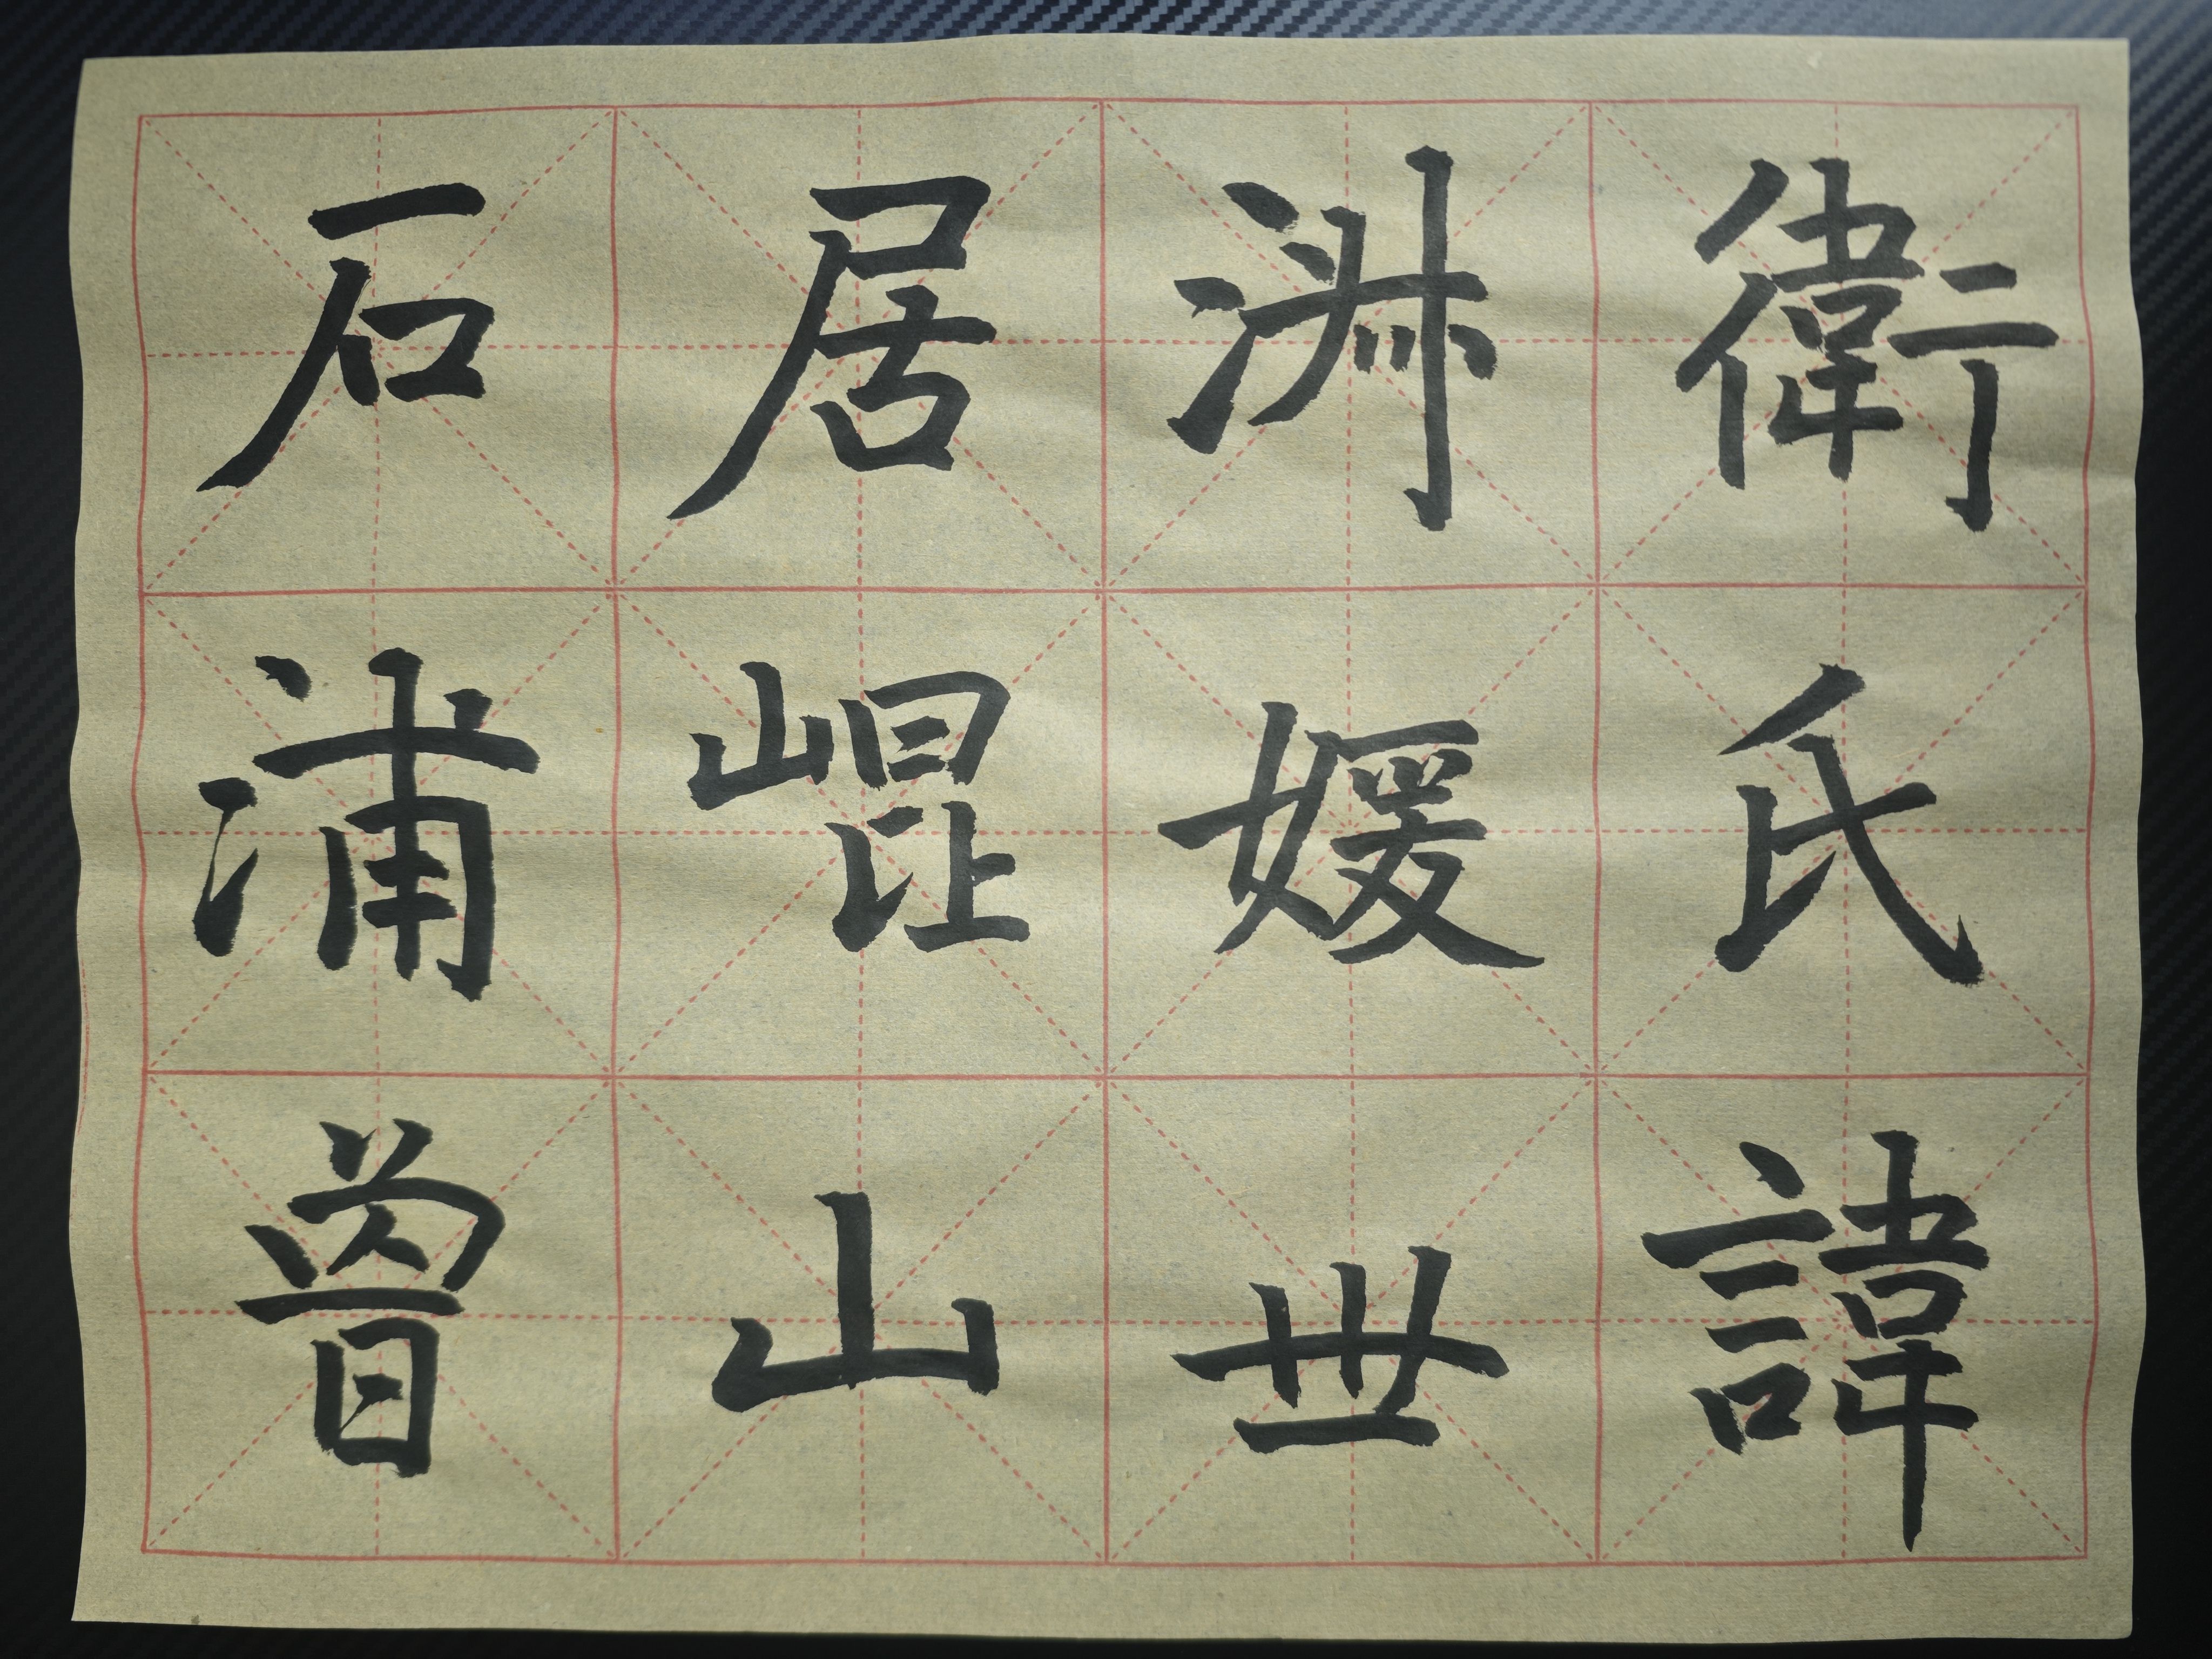 衛氏諱
淑媛世
居崐山
石浦曾